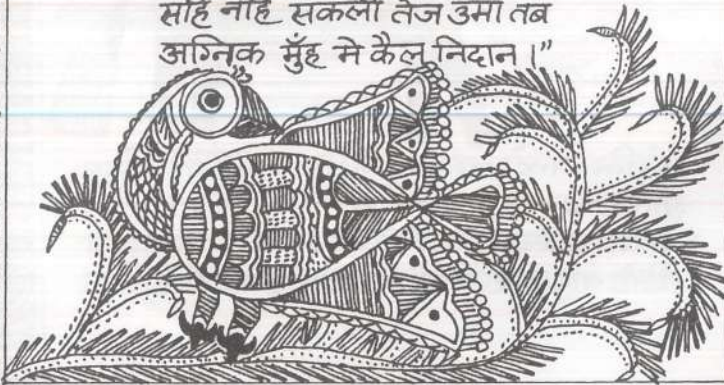 सहि नहि सकली तेज उमा तब
अग्निक मुँह मे कैल निदान।”